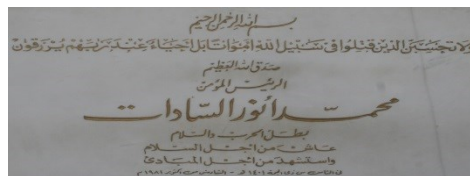 بسم الله الرحمن الرحيم
ولا تحسبن الذين قتلوا في سبيل الله أمواتا بل أحياء عند ربهم يرزقون
صدق الله العظيم
الرئيس المؤمن
محمد أنور السادات
بطل الحرب والسلام
عاش من أجل السلام
واستشهد من أجل المبادئ